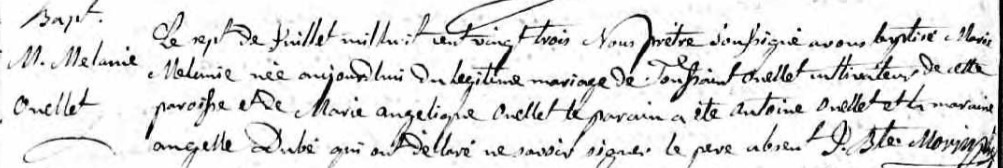 Bapt.
M. Melanie
Ouellet
Le sept de Juillet mil huit cent vingt trois Nous prêtre soussigné avons baptisé Marie
Melanie née aujourdhui du legitime mariage de Toussaint Ouellet cultivateur de cette
paroisse et de Marie angelique Ouellet le parain a été Antoine Ouellet et la maraine
angelle Dubé qui ont déclaré ne savoir signer le pere absent J. Bte. Morin ptre